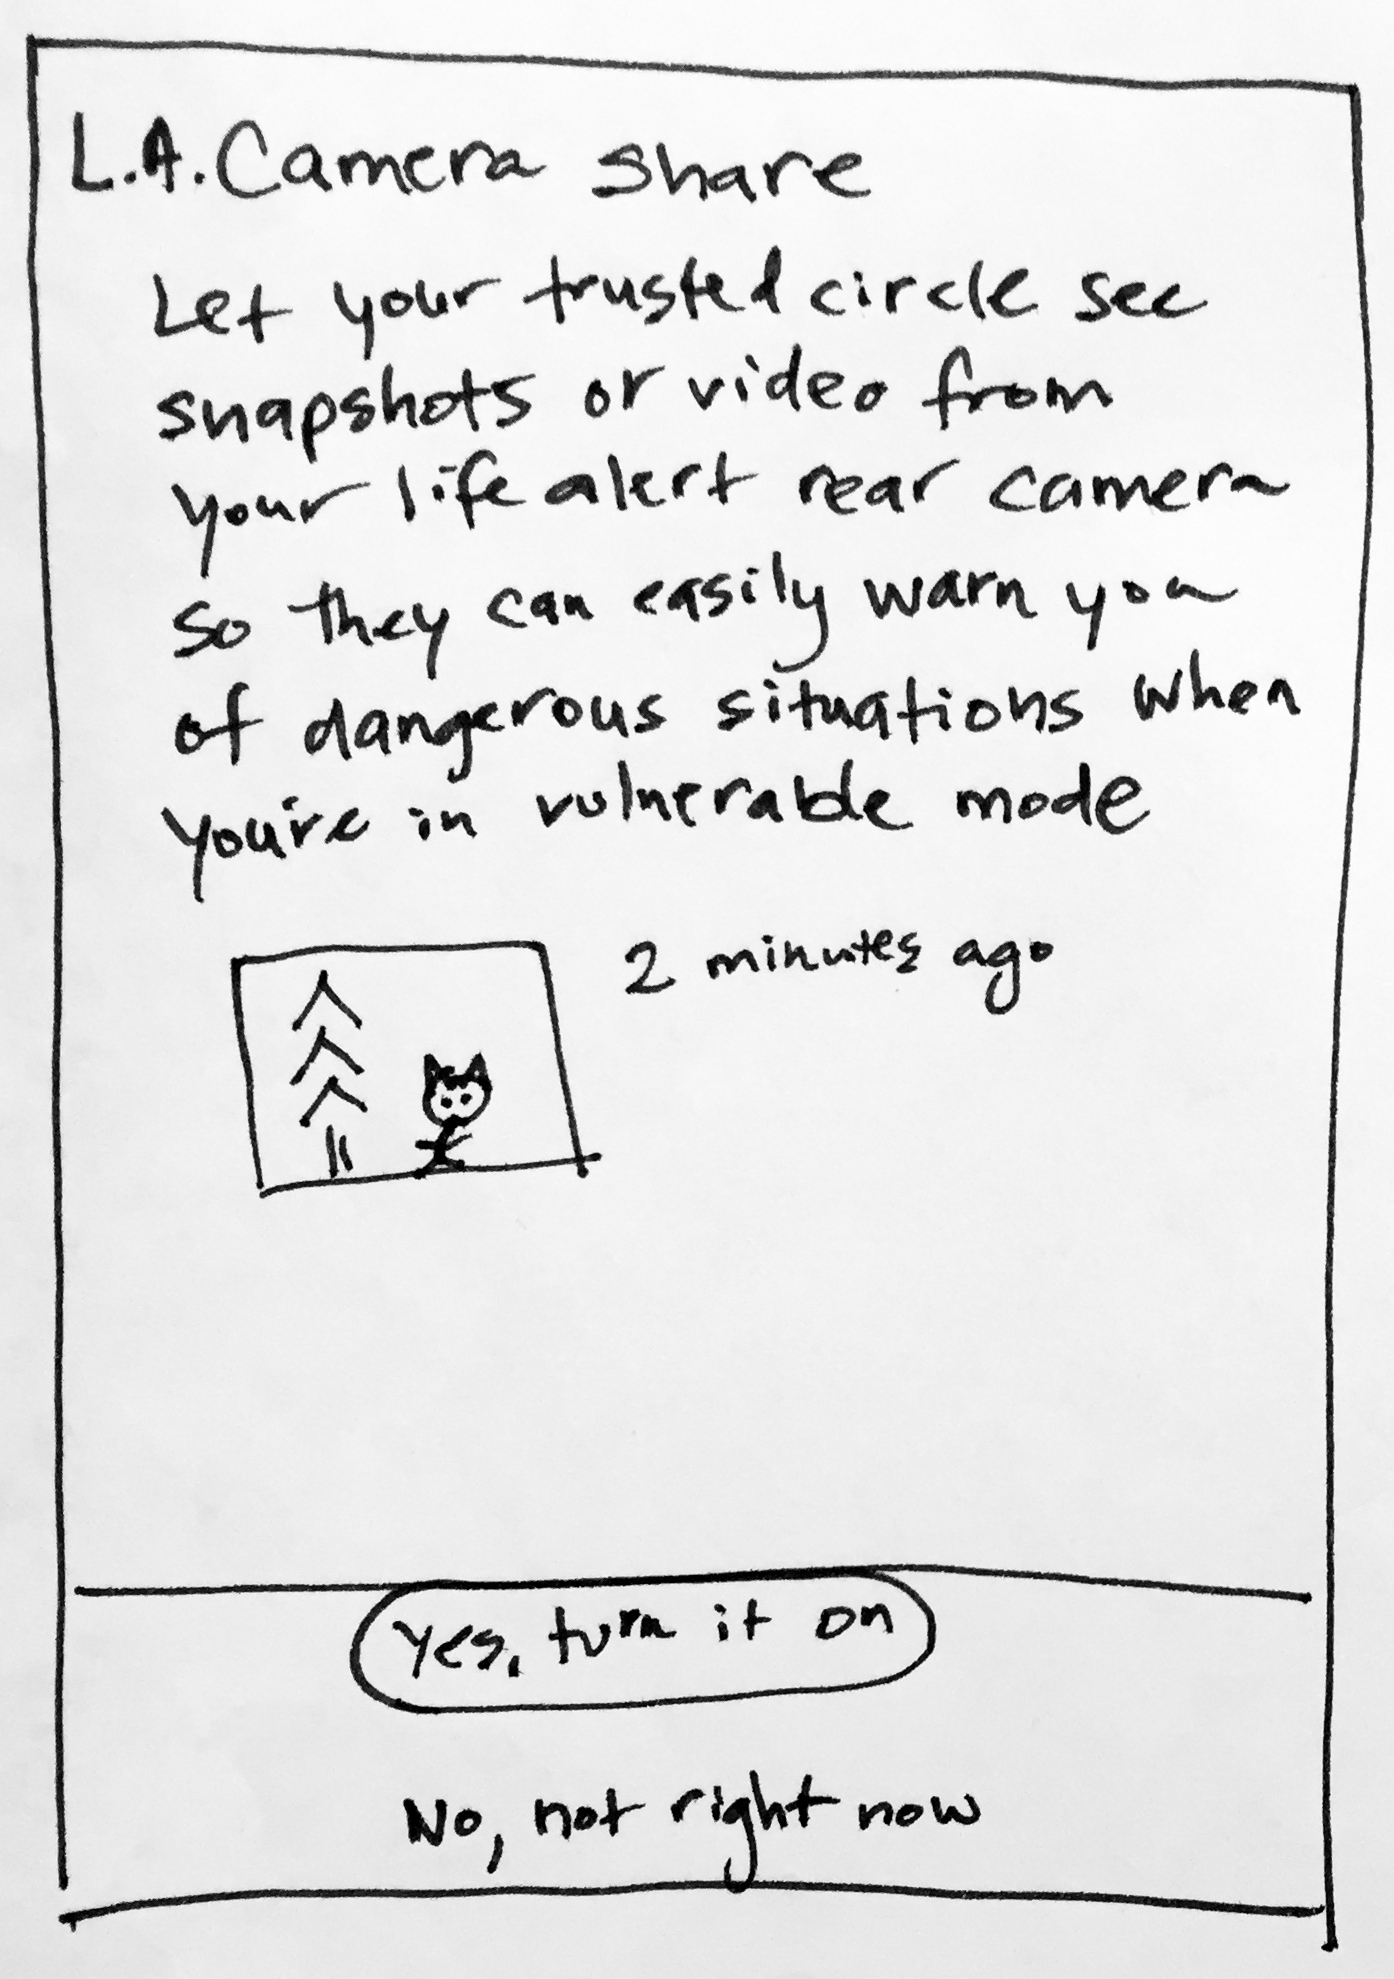 L.A. Camera share
Let your trusted circle see
snapshots or video from
your life alert rear camera
so they can easily warn you
of dangerous situations when
you're in vulnerable mode
2 minutes ago
Yes, turn it on
No, not right now